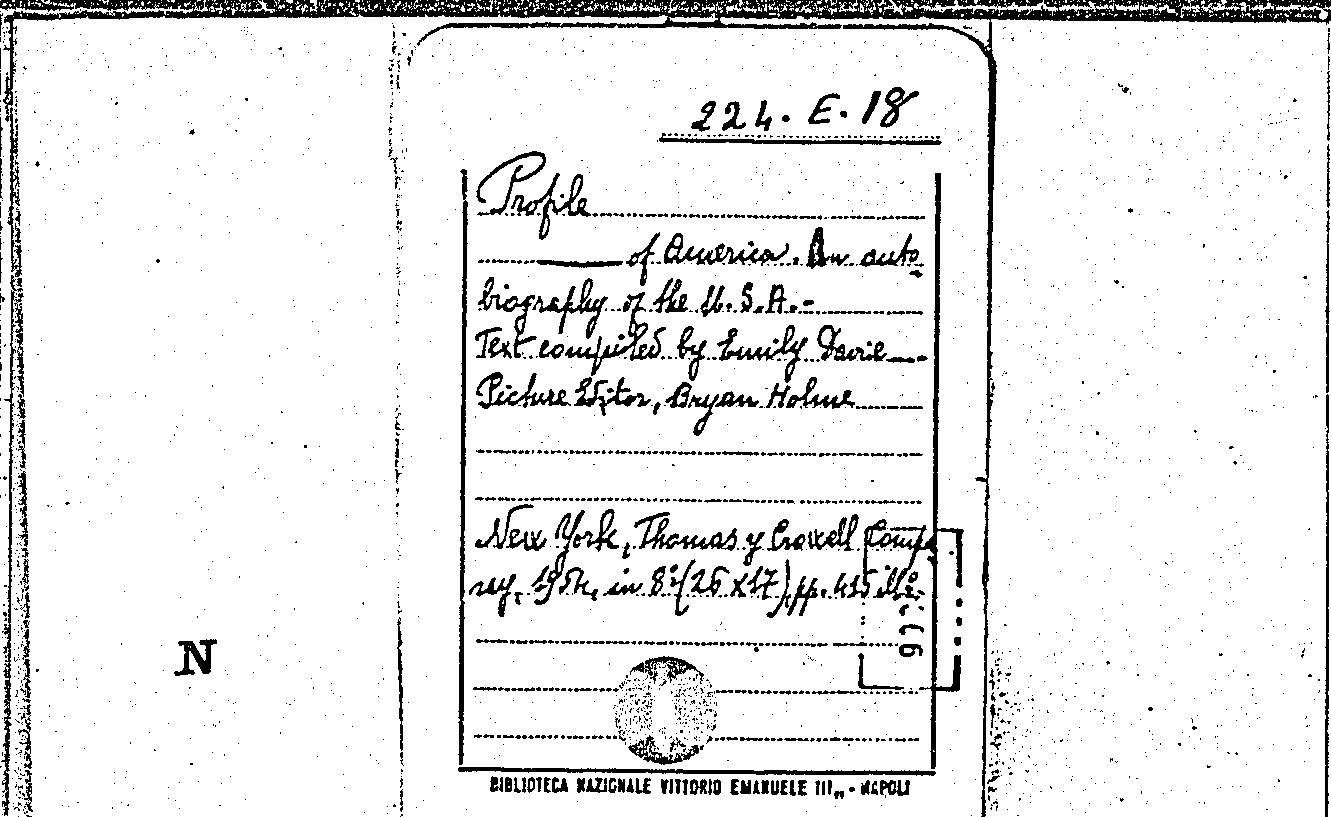 224. E. 18
Profile
of America. An auto
biography of the U.S.A.-
Text compiled by Emily Davie
Picture Editor, Bryan Holme
New York, Thomas y Crowell Comp
ny, 1954, in 8º (26 x 17), pp. 415 ill.
N
BIBLIOTECA NAZIONALE VITTORIO EMANUELE III„ - NAPOLI